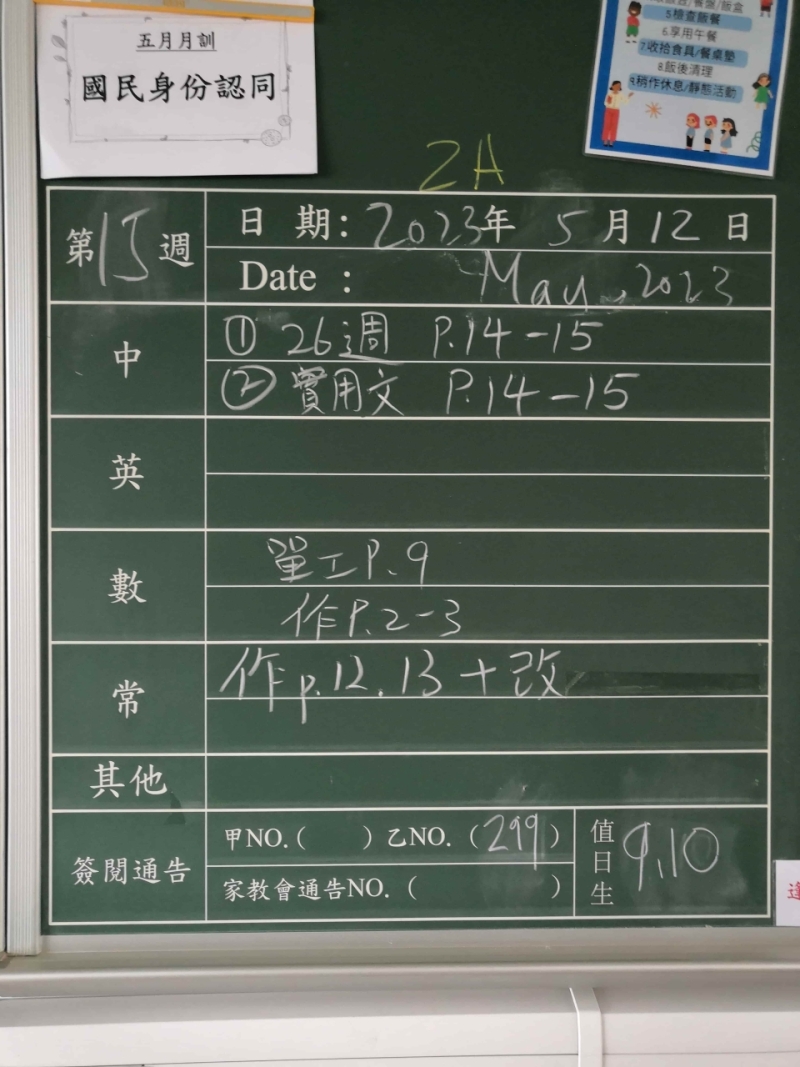 五月月訓
國民身份認同
5檢查飯餐
6.享用午餐
7.收拾食具/餐桌墊
8.飯後清理
9.稍作休息/靜態活動
2A
第15週
日期: 2023年 5月12日
Date : May, 2023
中
① 26週 P.14-15
② 實用文 P.14-15
英
數
單工P.9
作P.2-3
常
作p.12.13+改
其他
簽閱通告
甲NO.( ) 乙NO.(299)
家教會通告NO.( )
值日生
9,10